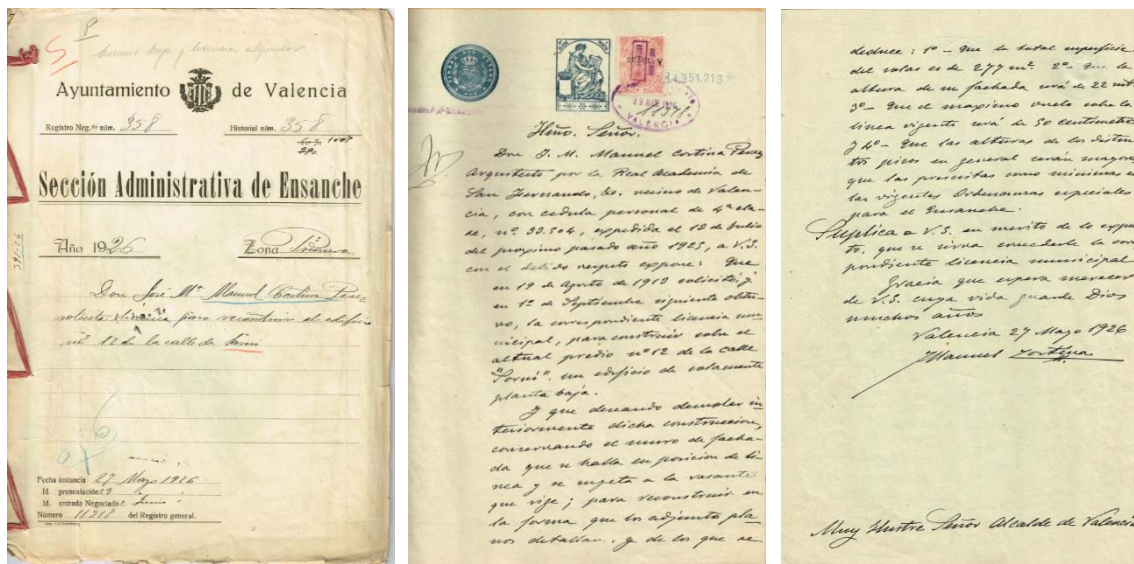 Ayuntamiento de Valencia
Registro Neg.do núm. 358 Historial núm. 358
Sección Administrativa de Ensanche
Año 1926 Zona
Don José Mª Manuel Cortina Perez
solicita licencia para reconstruir el edificio
nº 12 de la calle de Sorní
Fecha instancia 27 Mayo 1926
Id. presentación 29
Id. entrada Negociado 2 Junio
Número 11318 del Registro general.
A4.351.213
29 MAY 1926
VALENCIA
Iltmo. Señor.
Don J. M. Manuel Cortina Perez
Arquitecto por la Real Academia de
San Fernando, &c. vecino de Valen-
cia, con cedula personal de 4ª cla-
se, nº 33.504, expedida el 18 de Julio
del proximo pasado año 1925, a V.S.
con el debido respeto expone: Que
en 19 de Agosto de 1912 solicité, y
en 12 de Septiembre siguiente obtu-
vo, la correspondiente licencia mu-
nicipal, para construir sobre el
actual predio nº 12 de la calle
"Sorní" un edificio de solamente
planta baja.
Y que deseando demoler in-
teriormente dicha construccion,
conservando el muro de facha-
da que se halla en posicion de lí-
nea y se sujeta a la rasante
que rige; para reconstruir en
la forma que los adjuntos pla-
nos detallan, y de los que se
deduce: 1º - Que la total superficie
del solar es de 277 m². 2º - Que la
altura de su fachada será de 22 mts
3º - Que el maximo vuelo sobre la
linea vigente será de 50 centimetros
y 4º - Que las alturas de los distin-
tos pisos en general serán mayores
que las prescritas como minimas en
las vigentes Ordenanzas especiales
para el Ensanche.
Suplica a V.S. en merito de lo expues-
to, que se sirva concederle la corres-
pondiente licencia municipal
Gracia que espera merecer
de V.S. cuya vida guarde Dios
muchos años
Valencia 27 Mayo 1926
Manuel Cortina
Muy Ilustre Señor Alcalde de Valencia